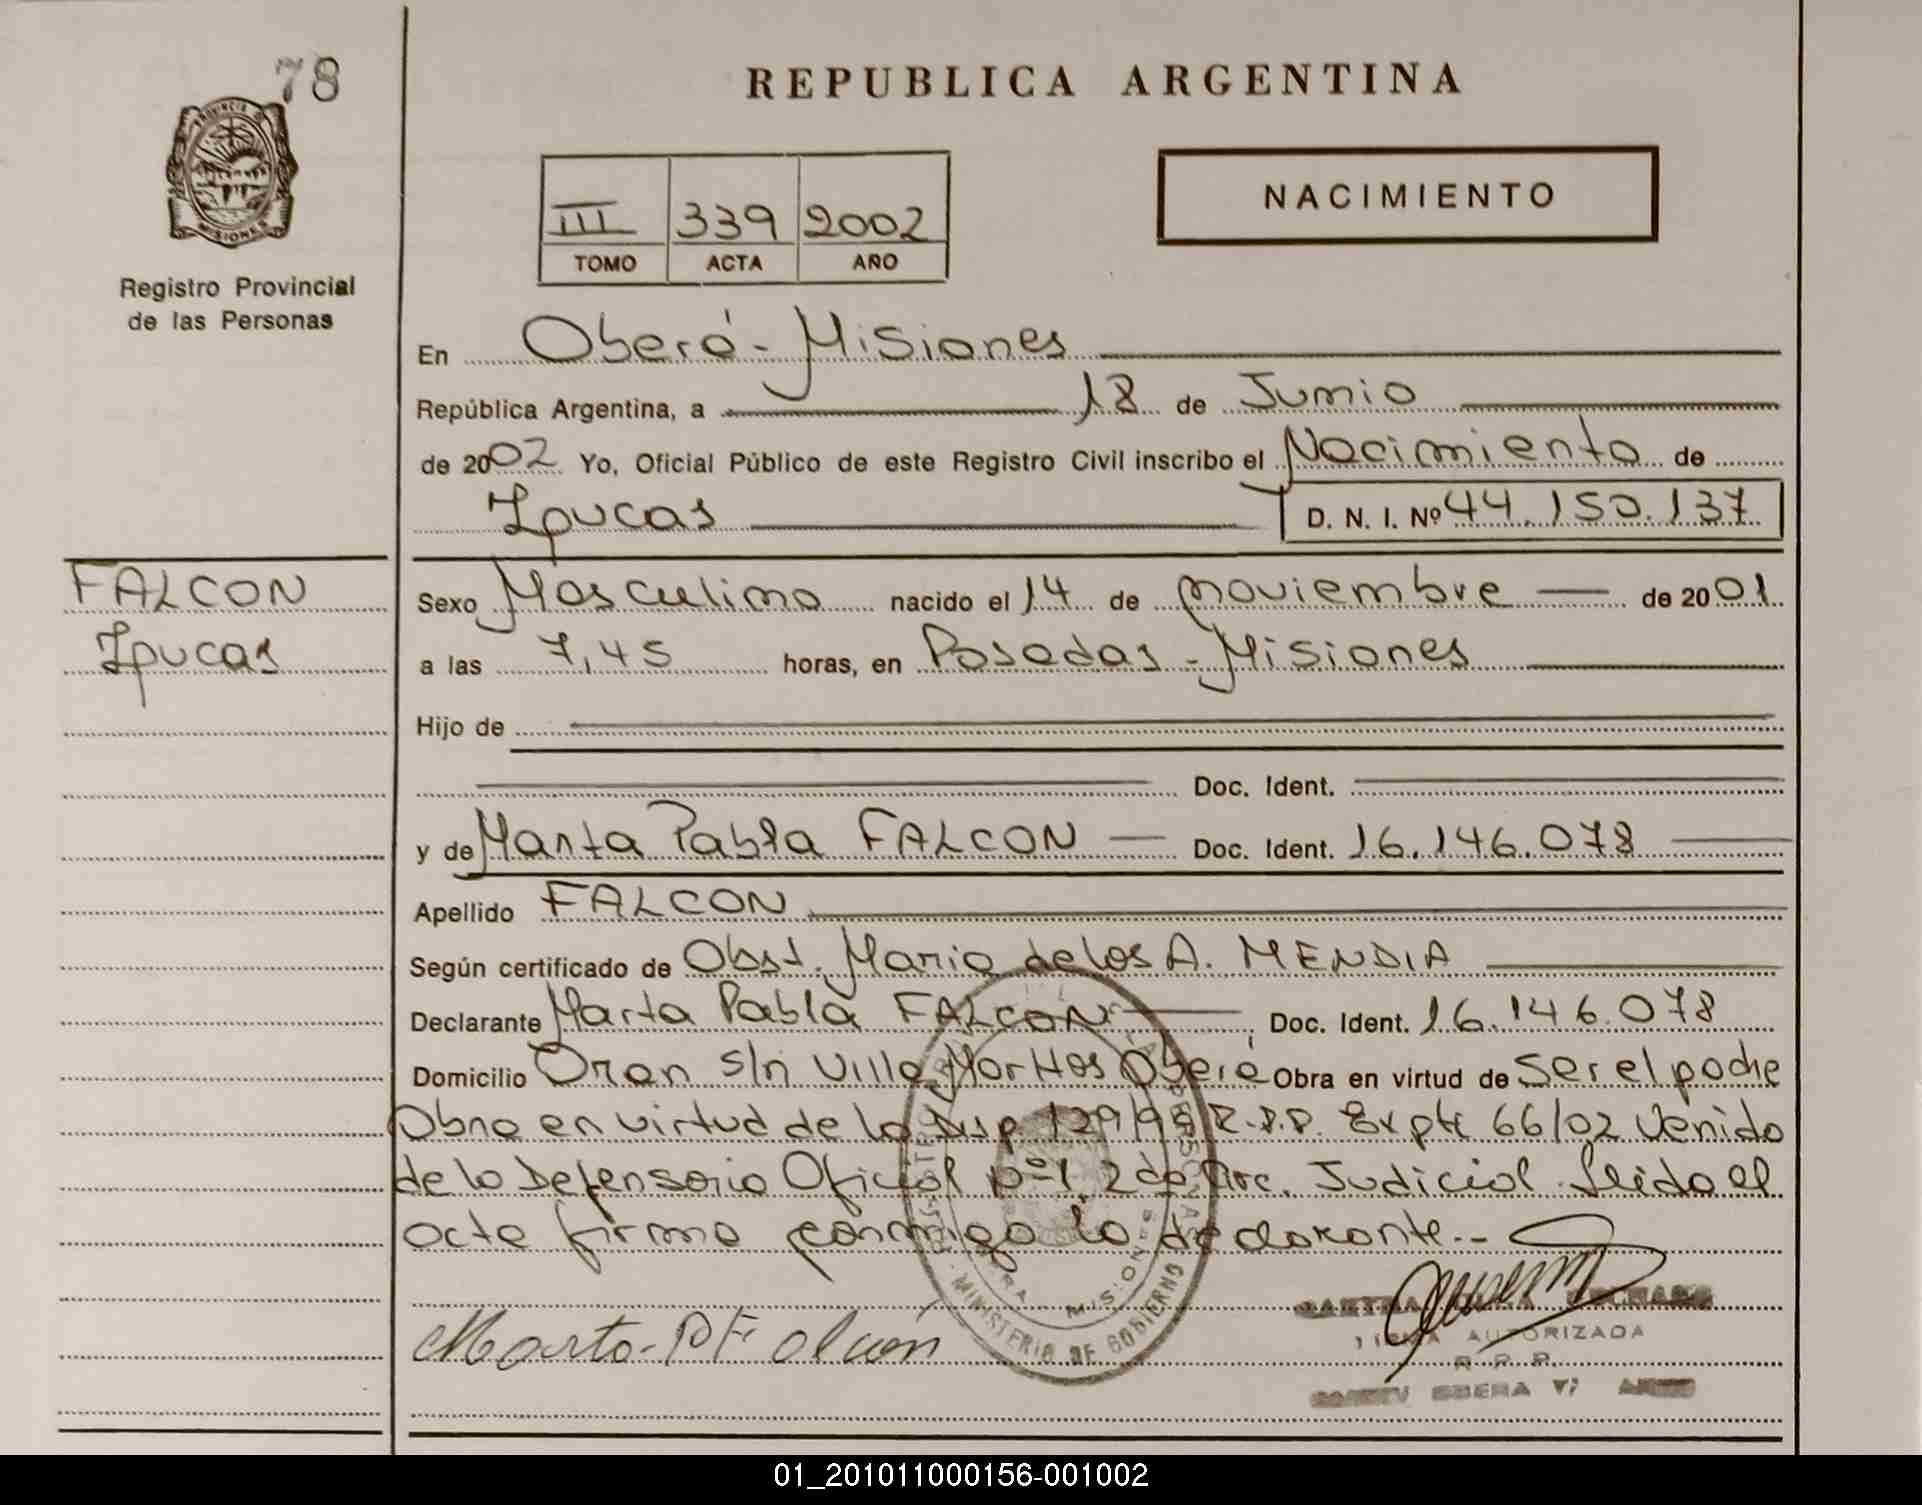 78
REPUBLICA ARGENTINA
PROVINCIA DE
MISIONES
Registro Provincial
de las Personas
NACIMIENTO
III 339 2002
TOMO ACTA AÑO
En Oberá - Misiones
República Argentina, a 18 de Junio
de 2002 Yo, Oficial Público de este Registro Civil inscribo el Nacimiento de
Lpucas D. N. I. Nº 44.150.137
FALCON
Lpucas
Sexo Masculino nacido el 14 de noviembre de 2001
a las 7,45 horas, en Posadas - Misiones
Hijo de
Doc. Ident.
y de Marta Pabla FALCON Doc. Ident. 16.146.078
Apellido FALCON
Según certificado de Obst. Maria de los A. MENDIA
Declarante Marta Pabla FALCON Doc. Ident. 16.146.078
Domicilio Oran s/n Villa Oberá Obra en virtud de Ser el padre
Obra en virtud de la Disp 129/98 R.P.P. Expte 66/02 Venido
de la Defensoria Oficial nº 1, 2da Circ. Judicial. Leida el
acta firma conmigo la declarante.-
Marta P Falcón
FIRMA AUTORIZADA
R. P. P.
OBERA
MINISTERIO DE GOBIERNO
MISIONES
01_201011000156-001002